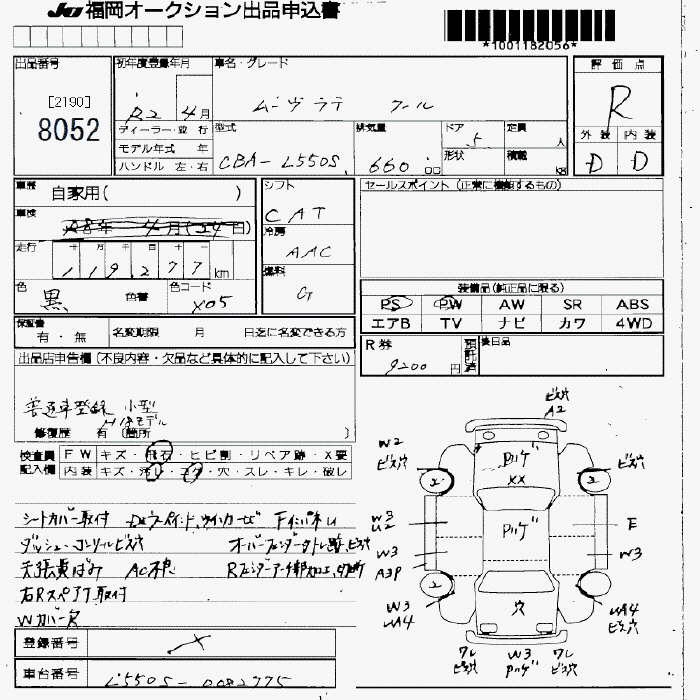 JU 福岡オークション出品申込書
*1001182056*
出品番号
[2190]
8052
初年度登録年月
R2 4月
ディーラー・並行
モデル年式 年
ハンドル 左・右
車名・グレード
ムーヴラテ クール
型式
CBA-L550S
排気量
660 cc
ドア
5
形状
定員
人
積載
kg
評価点
R
外装 内装
D D
車歴
自家用( )
車検
18年 4月(24日)
走行
十 万 千 百 十
119277 km
色
黒
色替
色コード
X05
シフト
CAT
冷房
AAC
燃料
G
セールスポイント (正常に機能するもの)
装備品(純正品に限る)
PS PW AW SR ABS
エアB TV ナビ カワ 4WD
保証書
有・無
名変期限 月 日迄に名変できる方
R券
9200 円
預託済
後日品
出品店申告欄 (不良内容・欠品など具体的に記入して下さい)
普通車登録 小型
H18モデル
修復歴 有 (箇所 )
検査員
記入欄
FW キズ・飛石・ヒビ割・リペア跡・X要
内装 キズ・汚れ・コゲ・穴・スレ・キレ・破レ
シートカバー取付
ダッシュ・コンソールビス穴
天張黄ばみ AC不良
右Rスペアタ取付
Wカバー欠
登録番号
車台番号
L550S-0082775
ビス穴
A2
W2
ビス穴
2
ハゲ
XX
2
ビス穴
W3
U2
ハゲ
E
W3
A3P
W3
2
W3
UA4
穴
2
UA4
ビス穴
ワレ
ビス穴
W3
ハゲ
ワレ
ビス穴